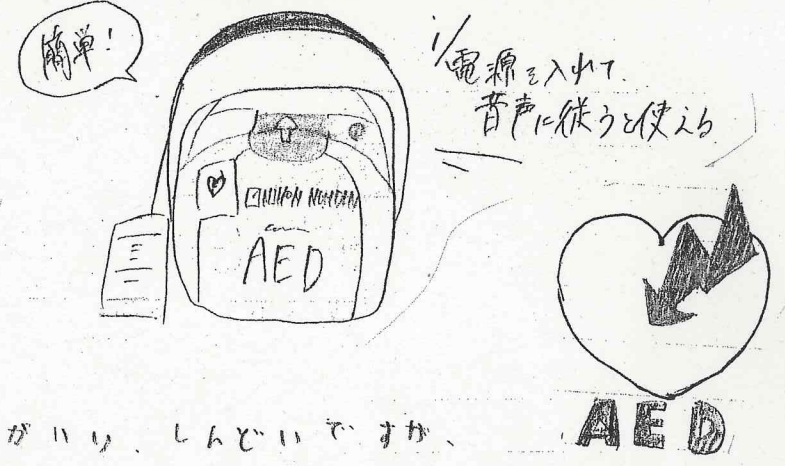 簡単!
電源を入れて
音声に従うと使える
NIHON KOHDEN
AED
AED
がいり、しんどいですが、